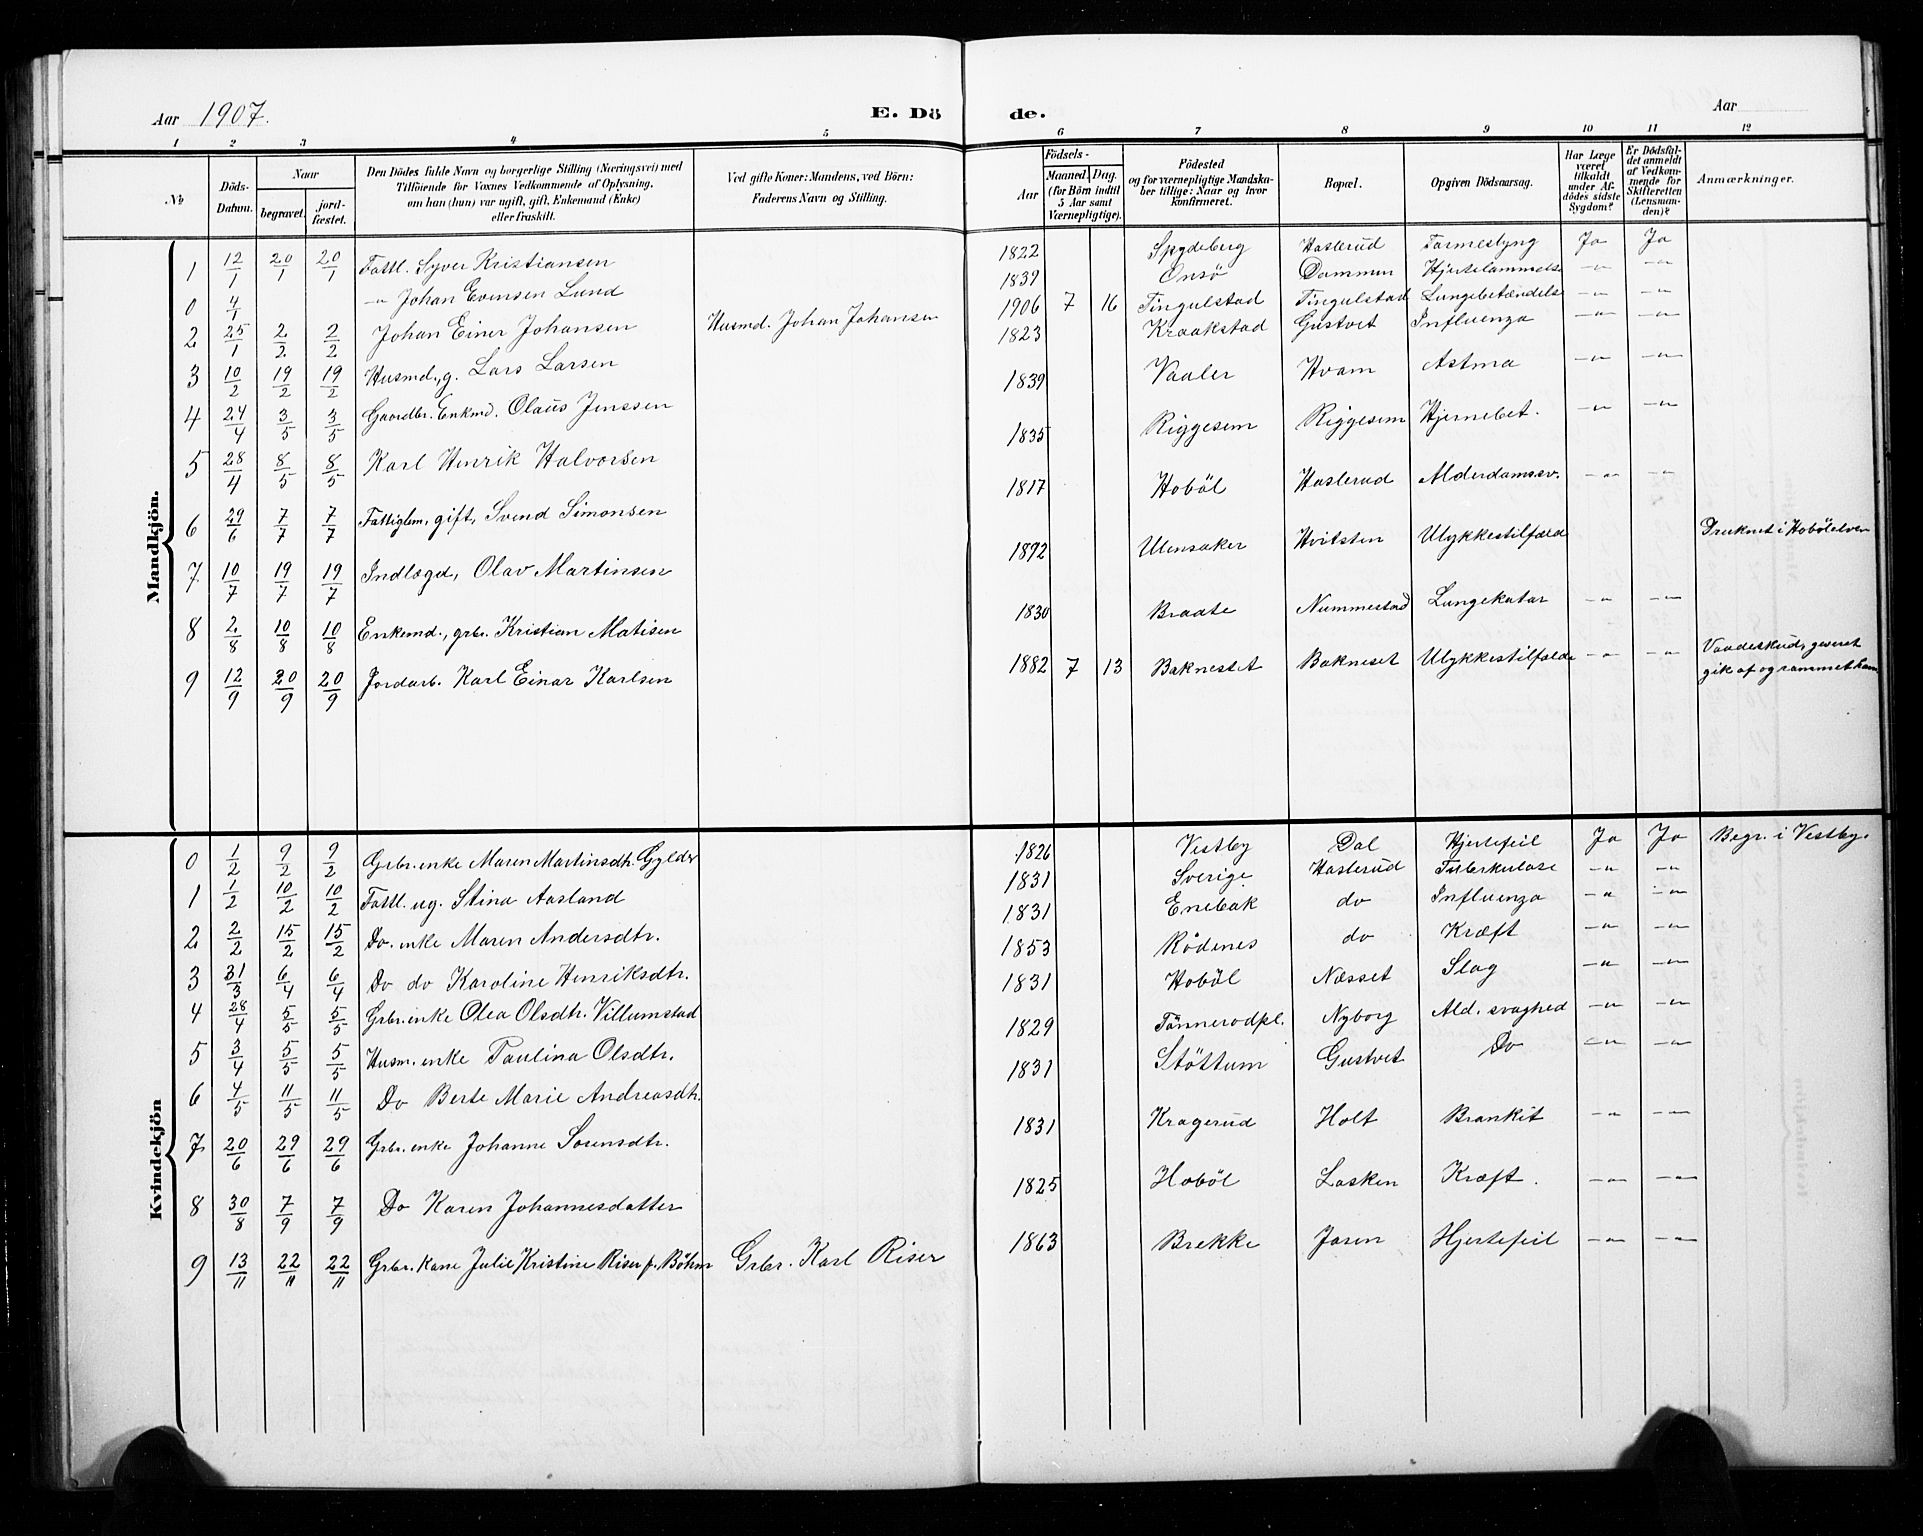 Aar 1907. E. Dö de. Aar
1 2 3 4 5 6 7 8 9 10 11 12
No
Döds-Datum.
Naar
begravet.
jord-fæstet.
Den Dödes fulde Navn og borgerlige Stilling (Næringsvei) med
Tilföiende for Voxnes Vedkommende af Oplysning,
om han (hun) var ugift, gift, Enkemand (Enke)
eller fraskilt.
Ved gifte Koner: Mandens, ved Börn:
Faderens Navn og Stilling.
Födsels-
Aar
Maaned. Dag.
(for Börn indtil
5 Aar samt
Værnepligtige).
Födested
og for værnepligtige Mandska-
ber tillige: Naar og hvor
konfirmeret.
Bopæl.
Opgiven Dödsaarsag.
Har Læge
været
tilkaldt
under Af-
dödes sidste
Sygdom?
Er Dödsfal-
det anmeldt
af Vedkom-
mende for
Skifteretten
(Lensman-
den)?
Anmærkninger.
Mandkjön.
1 12/1 20/1 20/1 Fattl. Syver Kristiansen 1822 Spydeberg Haslerud Tarmeslyng Ja Ja
0 4/1 -"- Johan Evensen Lund 1839 Onsö Dammen Hjertelammelse -"- -"-
2 25/1 2/2 2/2 Johan Einer Johansen Husmd. Johan Johansen 1906 7 16 Tingulstad Tingulstad Lungebetændelse -"- -"-
3 10/2 19/2 19/2 Husmd., g. Lars Larsen 1823 Kraakstad Gustvet Influenza -"- -"-
4 24/4 3/5 3/5 Gaardbr. Enkmd. Olaus Jenssen 1839 Vaaler Hvam Astma -"- -"-
5 28/4 8/5 8/5 Karl Henrik Halvorsen 1835 Riggesem Riggesem Hjernebet. -"- -"-
6 29/6 7/7 7/7 Fattiglm, gift, Svend Simonsen 1817 Hoböl Haslerud Alderdomssv. -"- -"-
7 10/7 19/7 19/7 Indlægd, Olav Martinsen 1892 Ulensaker Hvitsten Ulykkestilfælde Druknet i Hobölelven
8 2/8 10/8 10/8 Enkemd., grbr. Kristian Matisen 1830 Braate Nummestad Lungekatar -"- -"-
9 12/9 20/9 20/9 Jordarb. Karl Einar Karlsen 1882 7 13 Baknestet Bakneset Ulykkestilfælde -"- -"- Vaadeskud, geværet
gik af og rammet ham
Kvindekjön
0 1/2 9/2 9/2 Grbr. enke Maren Martinsdtr. Gylder 1826 Vestby Dal Hjertefeil Ja Ja Begr. i Vestby.
1 1/2 10/2 10/2 Fattl. ug. Stina Aasland 1831 Sverige Haslerud Tuberkulose -"- -"-
2 2/2 15/2 15/2 Do. enke Maren Andersdtr. 1831 Enebak do Influenza -"- -"-
3 31/3 6/4 6/4 Do do Karoline Henriksdtr. 1853 Rödenes do Kræft -"- -"-
4 28/4 5/5 5/5 Grbr. enke Olea Olsdtr. Villumstad 1831 Hoböl Næsset Slag -"- -"-
5 3/4 5/5 5/5 Husm. enke Paulina Olsdtr. 1829 Tönnerodpl. Nyborg Ald. svaghed -"- -"-
6 4/5 11/5 11/5 Do Berte Marie Andreasdtr. 1831 Stöttum Gustvet Do -"- -"-
7 20/6 29/6 29/6 Grbr. enke Johanne Sorensdtr. 1831 Kragerud Holt Brankit -"- -"-
8 30/8 7/9 7/9 Do Karen Johannesdatter 1825 Hoböl Losken Kræft. -"- -"-
9 13/11 22/11 22/11 Grbr. Kone Julie Kristine Riser f. Böhm Grbr. Karl Riser 1863 Brekke Jaren Hjertefeil -"- -"-